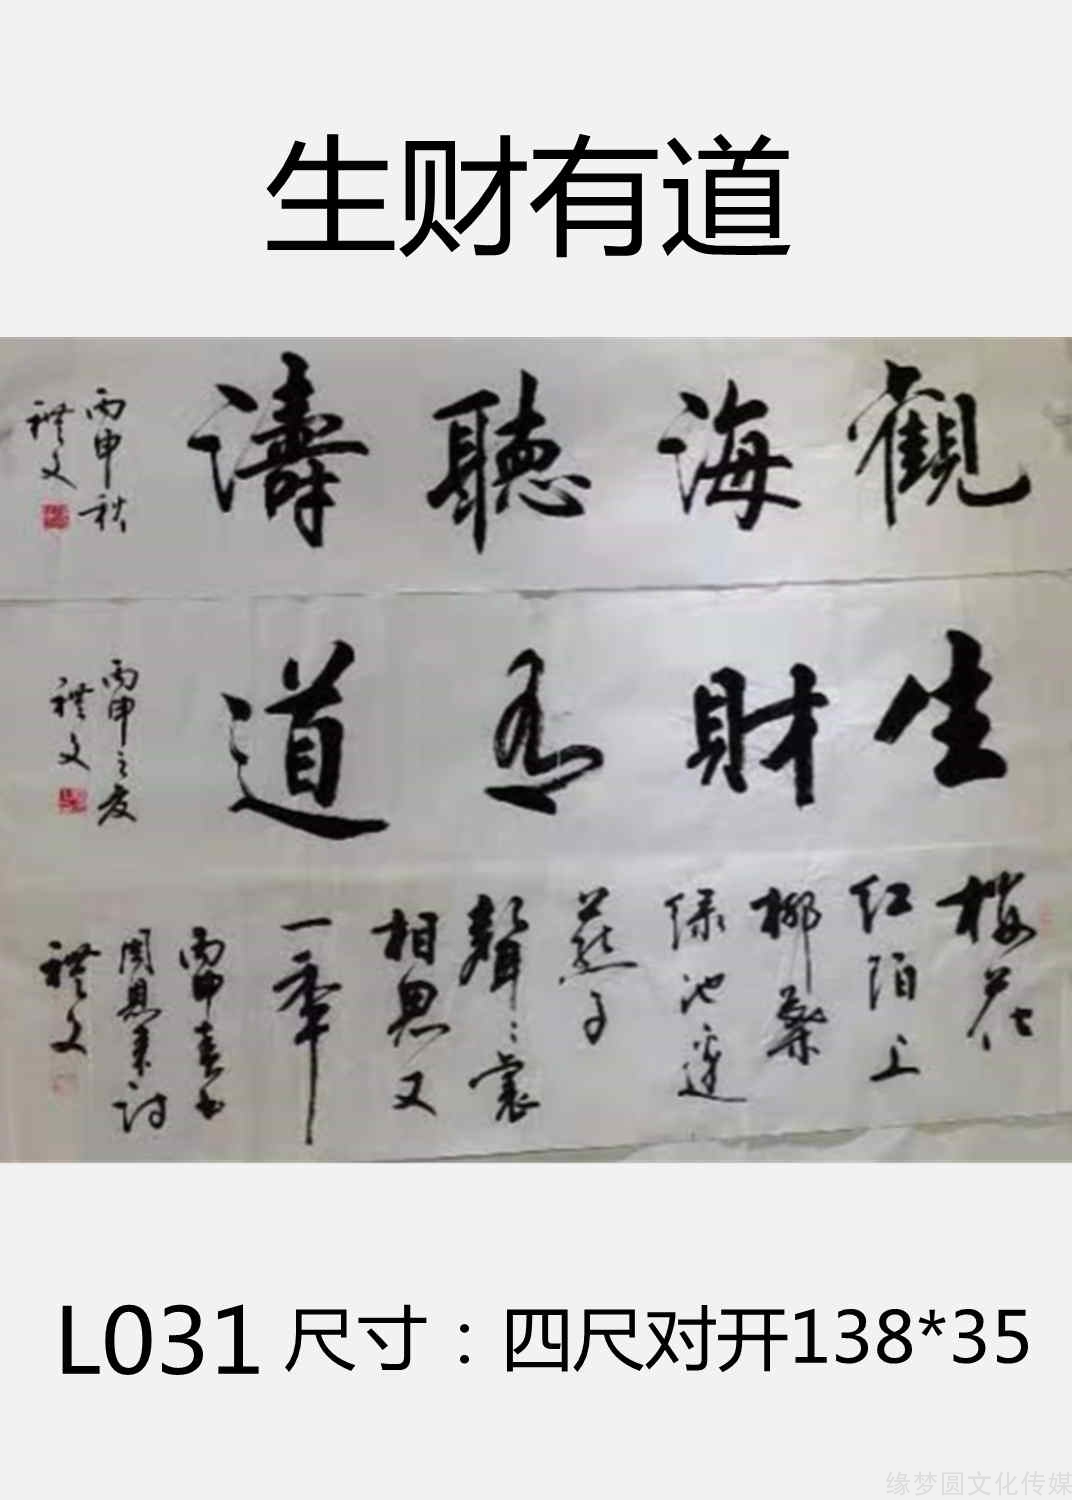 生财有道
觀海聽濤
丙申秋
禮文
生財有道
丙申之夏
禮文
樱花
红陌上
柳葉
绿池邊
燕子
聲聲裏
相思又
一年
丙申春书
周恩来詩
禮文
L031 尺寸：四尺对开138*35
缘梦圆文化传媒